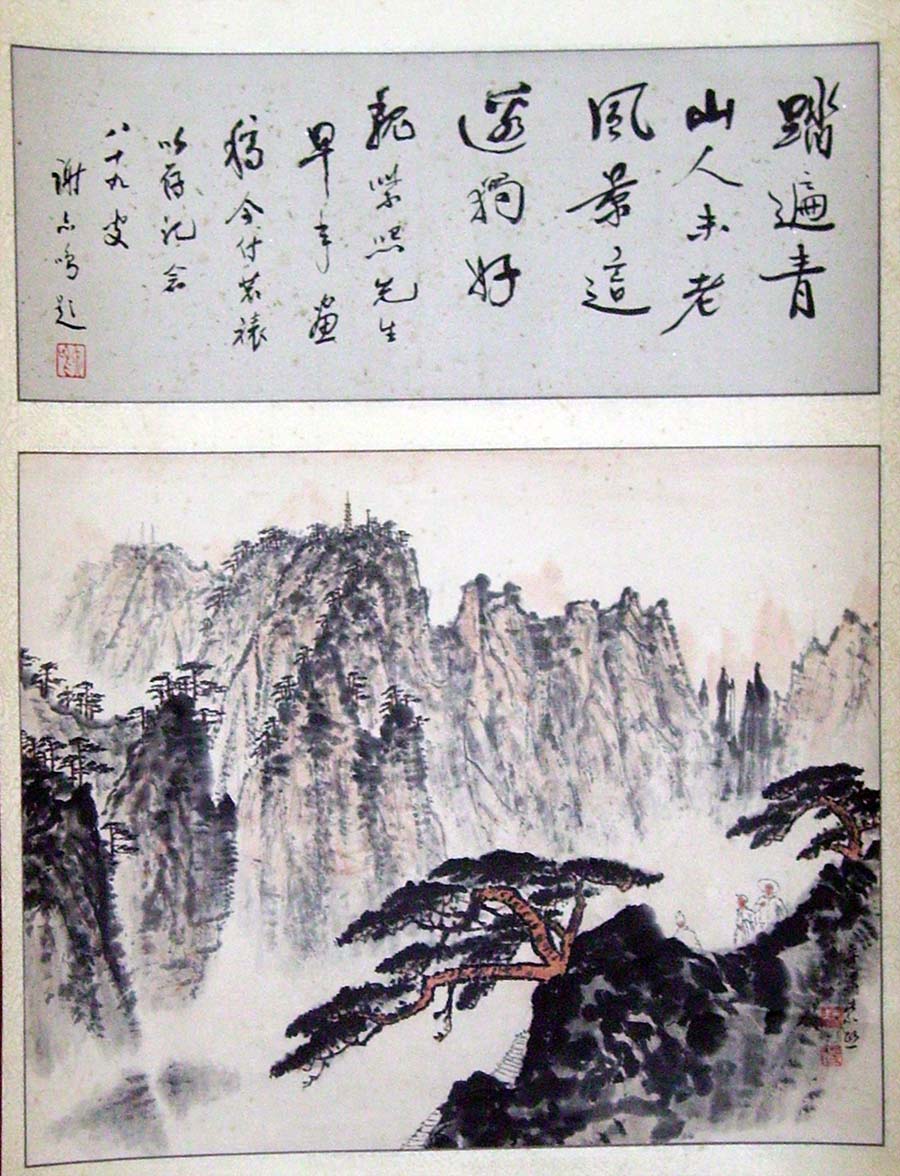 踏遍青
山人未老
風景這
邊獨好
魏紫熙先生
早年畫
稿今付裝裱
以存記念
八十九叟
謝之鳴題